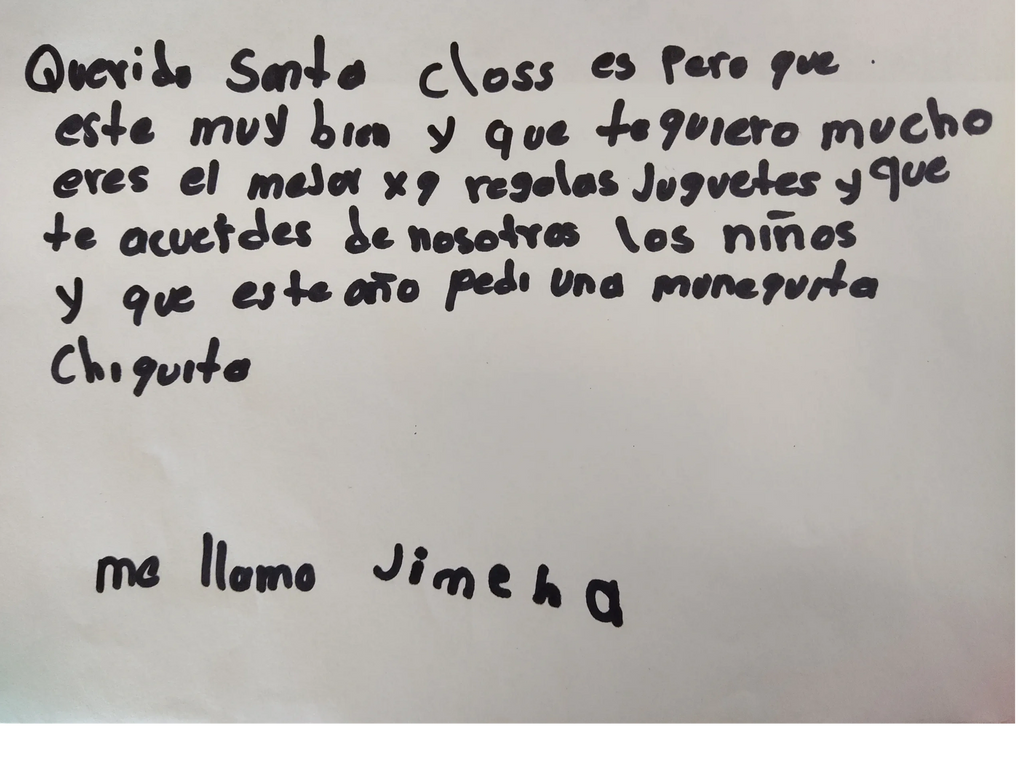 Querido Santa Closs es pero que
este muy bien y que te quiero mucho
eres el mejor x q regalas Juguetes y que
te acuerdes de nosotros los niños
y que este año pedi una munequita
Chiquita
me llamo Jimena